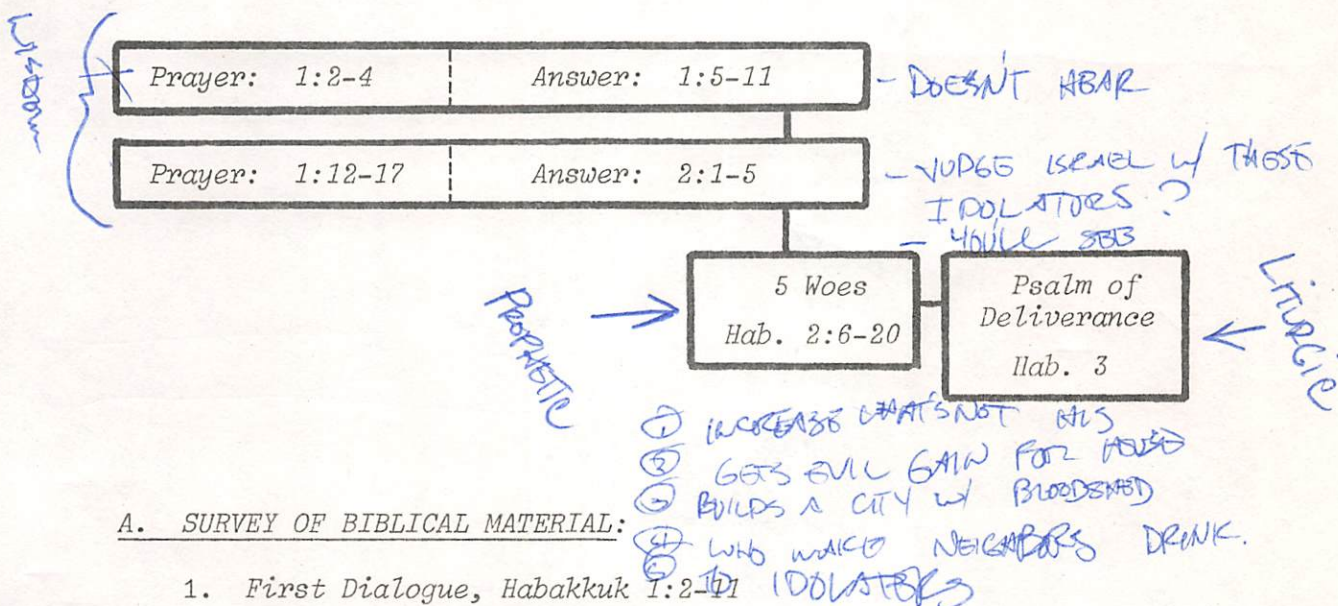 WISDOM
Prayer: 1:2-4 Answer: 1:5-11 - DOESN'T HEAR
Prayer: 1:12-17 Answer: 2:1-5 - JUDGE ISRAEL w/ THESE
IDOLATORS ?
- YOU'LL SEE
PROPHETIC
5 Woes
Hab. 2:6-20
Psalm of
Deliverance
Hab. 3
LITURGIC
① INCREASE WHAT'S NOT HIS
② GETS EVIL GAIN FOR HOUSE
③ BUILDS A CITY w/ BLOODSHED
④ WHO MAKE NEIGHBORS DRINK.
⑤ TO IDOLATORS
A. SURVEY OF BIBLICAL MATERIAL:
1. First Dialogue, Habakkuk 1:2-11